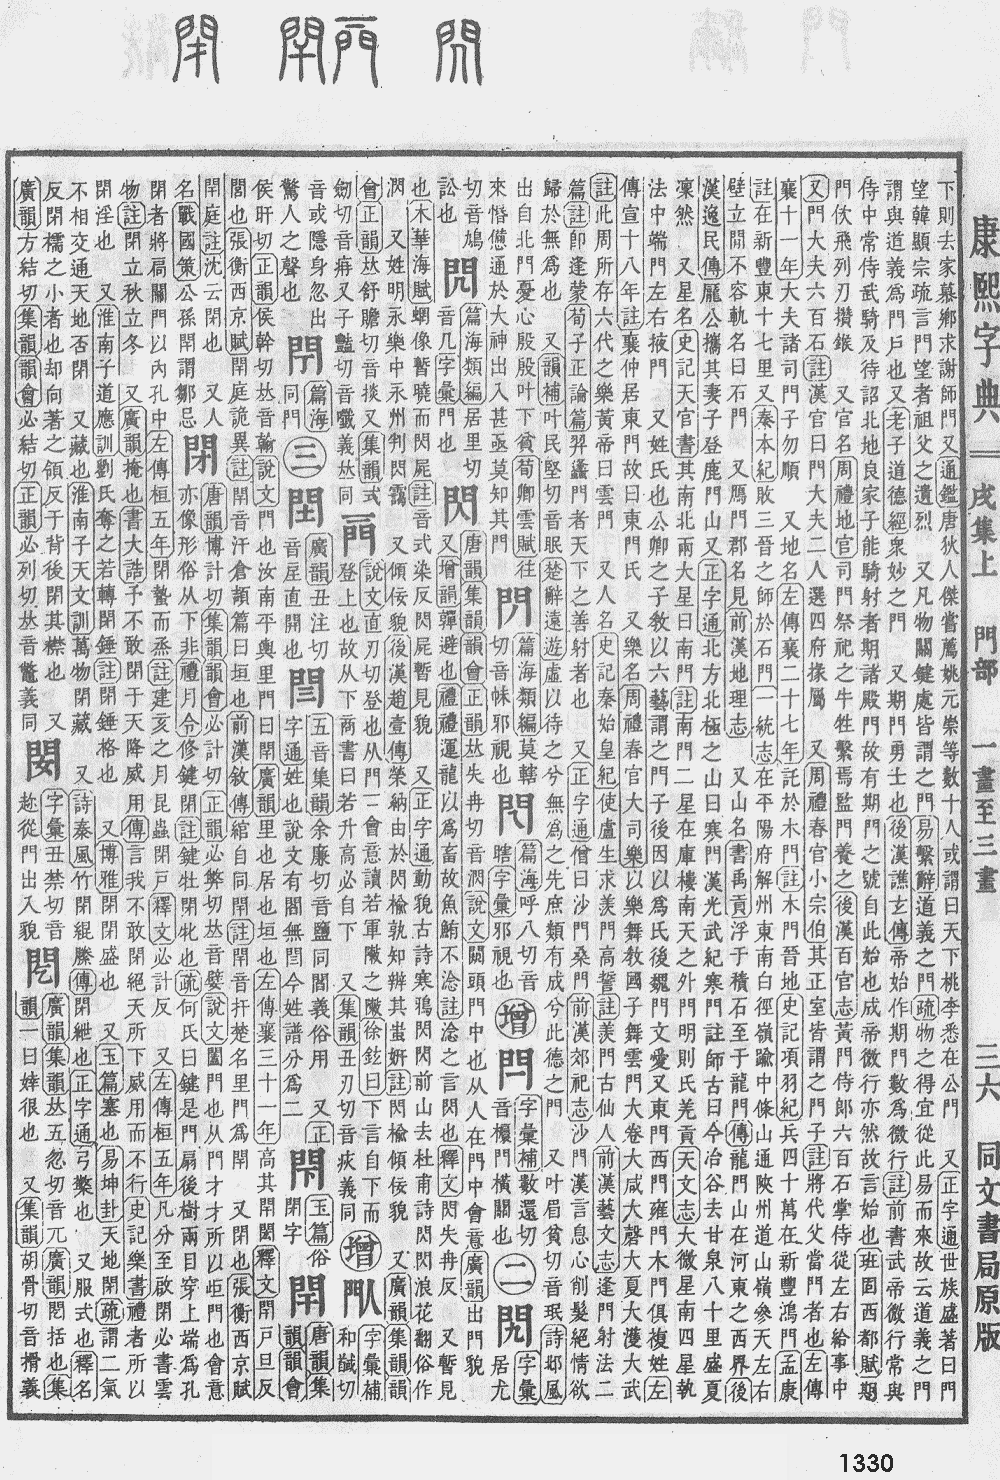 康熙字典 戌集上 門部 一畫至三畫 二六 同文書局原版
下則去家慕鄉求謝師門又通鑑唐狄人傑嘗薦姚元崇等數十人或謂曰天下桃李悉在公門 又正字通世族盛著曰門
望韓顯宗疏言門望者祖父之遺烈 又凡物關鍵處皆謂之門易繫辭道義之門疏物之得宜從此易而來故云道義之門
謂與道義爲門戶也又老子道德經衆妙之門 又期門勇士也後漢譙玄傳帝始作期門數爲微行註前書武帝微行常與
侍中常侍武騎及待詔北地良家子能騎射者期諸殿門故有期門之號自此始也成帝微行亦然故言始也班固西都賦期
門佽飛列刃攢鍭 又官名周禮地官司門祭祀之牛牲繫焉監門養之後漢百官志黃門侍郎六百石掌侍從左右給事中
又門大夫六百石註漢官曰門大夫二人選四府掾屬 又周禮春官小宗伯其正室皆謂之門子註將代父當門者也左傳
襄十一年大夫諸司門子勿順 又地名左傳襄二十七年託於木門註木門晉地史記項羽紀兵四十萬在新豐鴻門孟康
註在新豐東十七里又秦本紀敗三晉之師於石門一統志在平陽府解州東南白徑嶺踰中條山通陝州道山嶺參天左右
壁立閒不容軌名曰石門 又鴈門郡名見前漢地理志 又山名書禹貢浮于積石至于龍門傳龍門山在河東之西界後
漢逸民傳龐公攜其妻子登鹿門山又正字通北方北極之山曰寒門漢光武紀寒門註師古曰今冶谷去甘泉八十里盛夏
凜然 又星名史記天官書其南北兩大星曰南門註南門二星在庫樓南天之外門明則氐羌貢天文志大微星南四星執
法中端門左右掖門 又姓氏也公卿之子敎以六藝謂之門子後因以爲氏後魏門文愛又東門西門雍門木門俱複姓左
傳宣十八年註襄仲居東門故曰東門氏 又樂名周禮春官大司樂以樂舞敎國子舞雲門大卷大咸大磬大夏大濩大武
註此周所存六代之樂黃帝曰雲門 又人名史記秦始皇紀使盧生求羨門高誓註羨門古仙人前漢藝文志逢門射法二
篇註卽逢蒙荀子正論篇羿蠭門者天下之善射者也 又正字通僧曰沙門桑門前漢郊祀志沙門漢言息心削髮絕情欲
歸於無爲也 又韻補叶民堅切音眠楚辭遠遊虛以待之兮無爲之先庶類有成兮此德之門 又叶眉貧切音珉詩邶風
出自北門憂心殷殷叶下貧荀卿雲賦往
來惛憊通於大神出入甚亟莫知其門 閅 篇海類編莫轄
切音帓邪視也 閁 篇海呼八切音
瞎字彙邪視也 增 閂 字彙補數還切
音櫦門橫關也 二 閌 字彙
居尤
切音鳩
訟也 閌 篇海類編居里切
音几字彙門也 閃 唐韻集韻韻會正韻𠀤失冉切音潤說文闚頭門中也从人在門中會意廣韻出門貌
又增韻彈避也禮禮運龍以爲畜故魚鮪不淰註淰之言閃也釋文閃失冉反 又暫見
也木華海賦蝄像暫曉而閃屍註音式染反閃屍暫見貌 又正字通動貌古詩寒鴉閃閃前山去杜甫詩閃閃浪花翻俗作
閖 又姓明永樂中永州判閃靄 又傾佞貌後漢趙壹傳榮納由於閃榆孰知辨其蚩姸註閃榆傾佞貌 又廣韻集韻韻
會正韻𠀤舒贍切音掞又集韻式
劒切音痟又子豔切音殲義𠀤同 𨳇 說文直刃切登也从門二會意讀若軍敶之敶徐鉉曰下言自下而
登上也故从下商書曰若升高必自下 又集韻丑刃切音疢義同 增 𨳈 字彙補
和馘切
音或隱身忽出
驚人之聲也 閈 篇海
同門 三 𨳕 廣韻丑注切
音𡱝直開也 閆 五音集韻余廉切音鹽同閻義俗用 又正
字通姓也說文有閻無閆今姓譜分爲二 閇 玉篇俗
閉字 閈 唐韻集
韻韻會
侯旰切正韻侯幹切𠀤音翰說文門也汝南平輿里門曰閈廣韻里也居也垣也左傳襄三十一年高其閈閎釋文閈戶旦反
閭也張衡西京賦閈庭詭異註閈音汗倉頡篇曰垣也前漢敘傳綰自同閈註閈音扞楚名里門爲閈 又閉也張衡西京賦
閈庭註沈云閉也 又人
名戰國策公孫閈謂鄒忌 閉 唐韻博計切集韻韻會必計切正韻必弊切𠀤音嬖說文闔門也从門才才所以歫門也會意
亦像形俗从下非禮月令修鍵閉註鍵牡閉牝也疏何氏曰鍵是門扇後樹兩目穿上端爲孔
閉者將扃關門以內孔中左傳桓五年閉蟄而烝註建亥之月昆蟲閉戶釋文必計反 又左傳桓五年凡分至啟閉必書雲
物註閉立秋立冬 又廣韻掩也書大誥予不敢閉于天降威用傳言我不敢閉絕天所下威用而不行史記樂書禮者所以
閉淫也 又淮南子道應訓劉氏奪之若轉閉錘註閉錘格也 又博雅閉閉盛也 又玉篇塞也易坤卦天地閉疏謂二氣
不相交通天地否閉 又藏也淮南子天文訓萬物閉藏 又詩秦風竹閉緄縢傳閉紲也正字通弓檠也 又服式也釋名
反閉襦之小者也却向著之領反于背後閉其襟也 又
廣韻方結切集韻韻會必結切正韻必列切𠀤音鷩義同 閿 字彙丑禁切音
趂從門出入貌 𨳚 廣韻集韻𠀤五忽切音兀廣韻𨳚括也集
韻一曰婞很也 又集韻胡骨切音搰義
1330